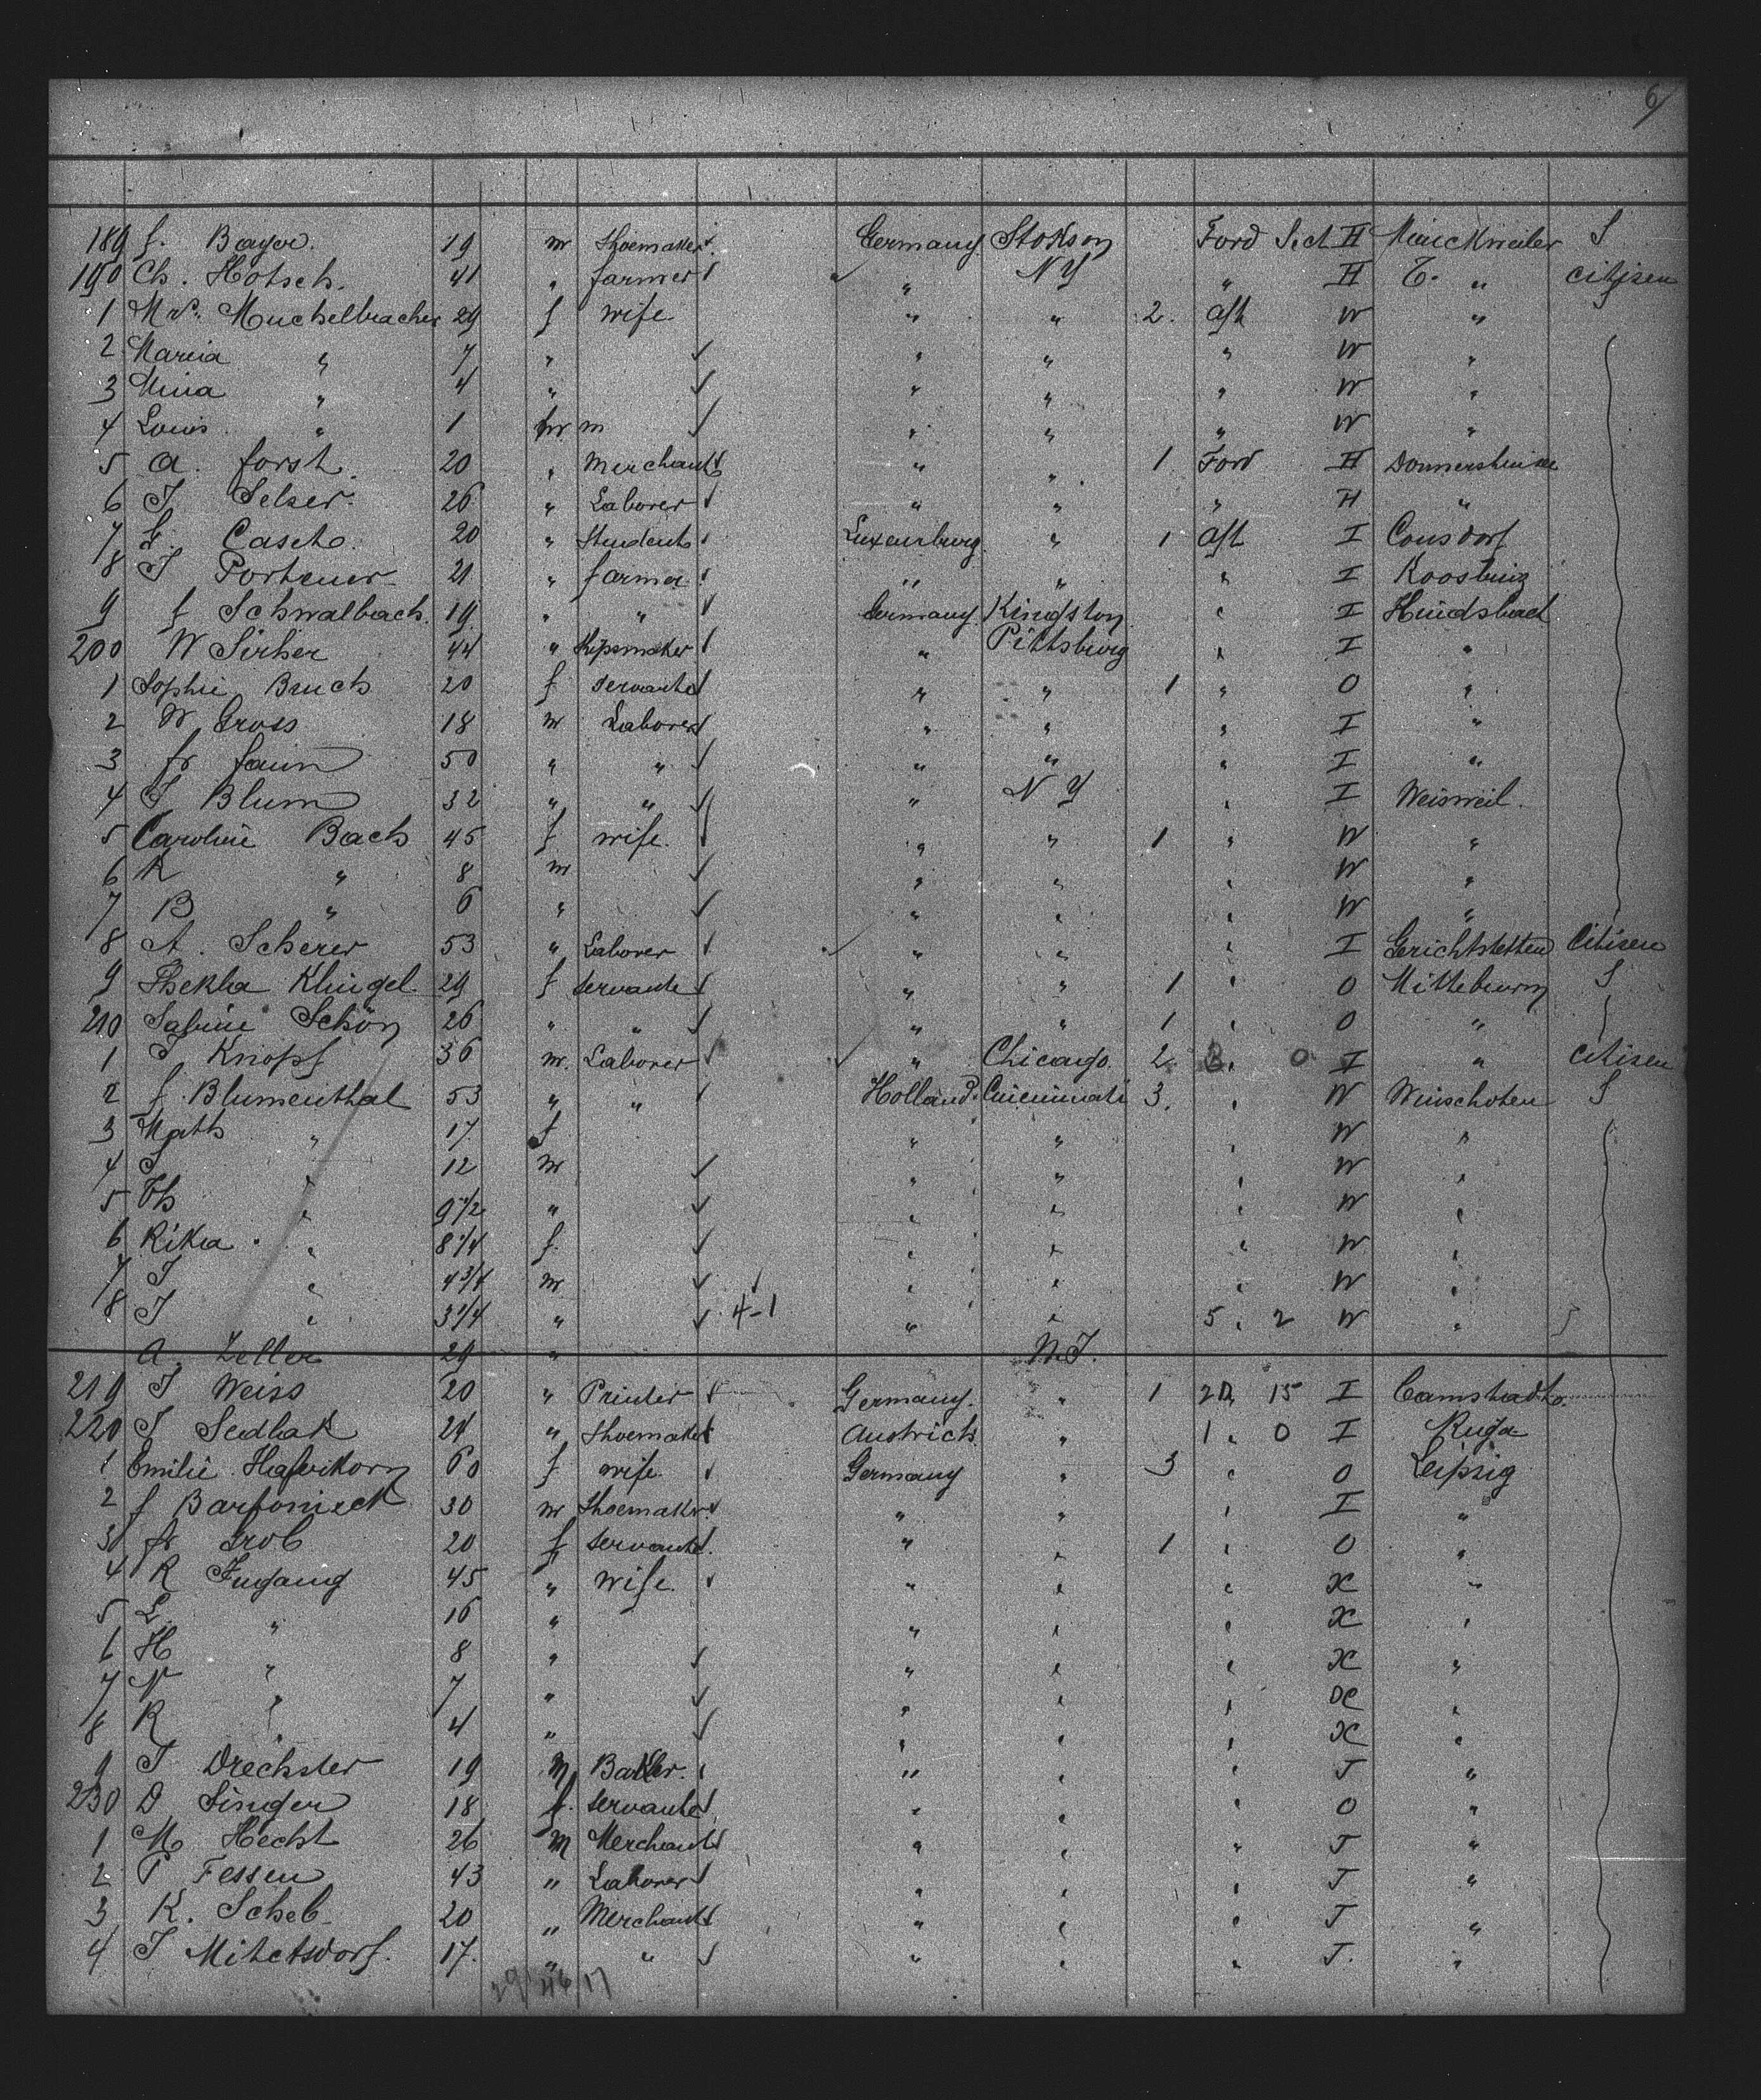 6
189 f. Bayer. 19 m Shoemaker Germany Stokson Ford Sect H S
190 Ch. Hotsch. 41 " farmer " N Y " H " citizen
1 Mrs. Muchelbacher 29 f wife " " 2. Aft W "
2 Maria " 7 " " " " W "
3 Mina " 4 " " " " W "
4 Louis " 1 m " " " W "
5 A. forst. 20 " Merchant " " 1 Ford H
6 J Selzer 26 " Laborer " " " H "
7 Casch 20 " Student Luxemburg " 1 Aft I Consdorf
8 J Portener 21 " farmer " " " I
9 f Schwalbach. 19 " " Germany Kingston " I Hundsbach
200 W Sirker 44 " " Pittsburg " I "
1 Sophie Bruch 20 f servante " " 1 " O "
2 W Gross 18 m Laborer " " " I "
3 fr faun 50 " " " " " I "
4 J Blum 32 " " " N Y " I Weisweil.
5 Caroline Bach 45 f wife " " 1 " W "
6 K " 8 m " " " W "
7 B " 6 " " " " W "
8 A. Scherer 53 " Laborer " " " I Gerichtstetten Citisen
9 Thekla Klingel 29 f servante " " 1 " O S
210 Sabine Schön 26 " " " " 1 " O "
1 J Knopf 36 m. Laborer " Chicago 2 " 0 I " citisen
2 f. Blumenthal 53 " " Holland. Cincinnati 3. " W Winschoten S
3 Math " 17 f " " " W "
4 J " 12 m " " " W "
5 Th " 9 1/2 " " " " W "
6 Rika " 8 1/4 f. " " " W "
7 J " 4 3/4 m " " " W "
8 J " 3 1/4 " 4-1 " " 5 " 2 W "
A. Zeller 29 "
219 J Weiss 20 " Printer Germany. " 1 20 15 I
220 J Sedlak 24 " Shoemaker Austrich " 1 " 0 I Ruga
1 Emilie Haferkorn 60 f wife Germany " 3 " O Leipzig
2 f 30 m Shoemaker " " " I "
3 fr Grob 20 f servante. " " 1 " O "
4 R Ingang 45 " wife. " " " X "
5 L " 16 " " " " X "
6 H " 8 " " " " X "
7 N " 7 " " " " X "
8 R " 4 " " " " X "
9 J Drechsler 19 m Baker. " " " J "
230 D Singer 18 f. servante " " " O "
1 M Hecht 26 m Merchant " " " J "
2 P Fessen 43 " Laborer " " " J "
3 K. Scheb 20 " Merchant " " " J "
4 J Mitetsdorf. 17. " " " " " J. "
29 46 17